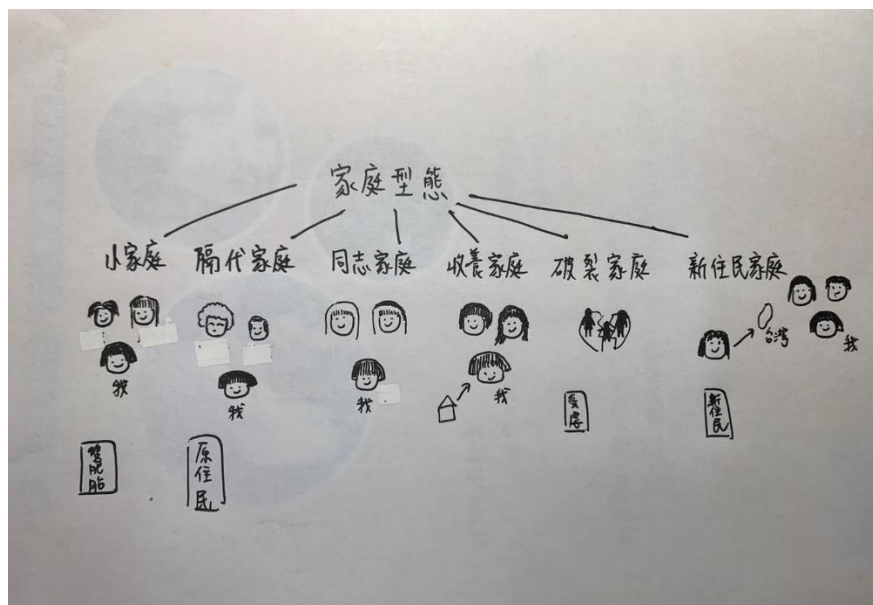 家庭型態
小家庭
隔代家庭
同志家庭
收養家庭
破裂家庭
新住民家庭
我
我
我
我
台灣
我
雙胞胎
原住民
受虐
新住民